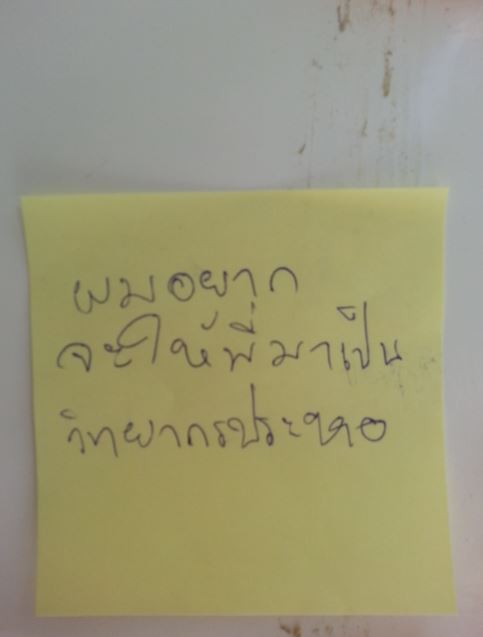 ผมอยาก
จะให้พี่มาเป็น
วิทยากรประหอ